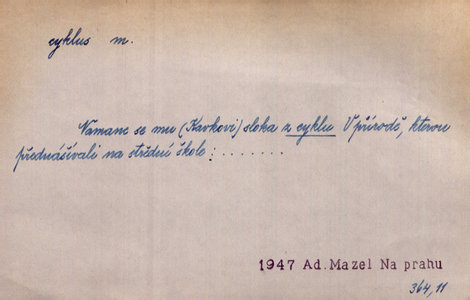 cyklus m.
Namane se mu (Kavkovi) sloka z cyklu V přírodě, kterou
přednášívali na střední škole : . . . . . . .
1947 Ad. Mazel Na prahu
364, 11